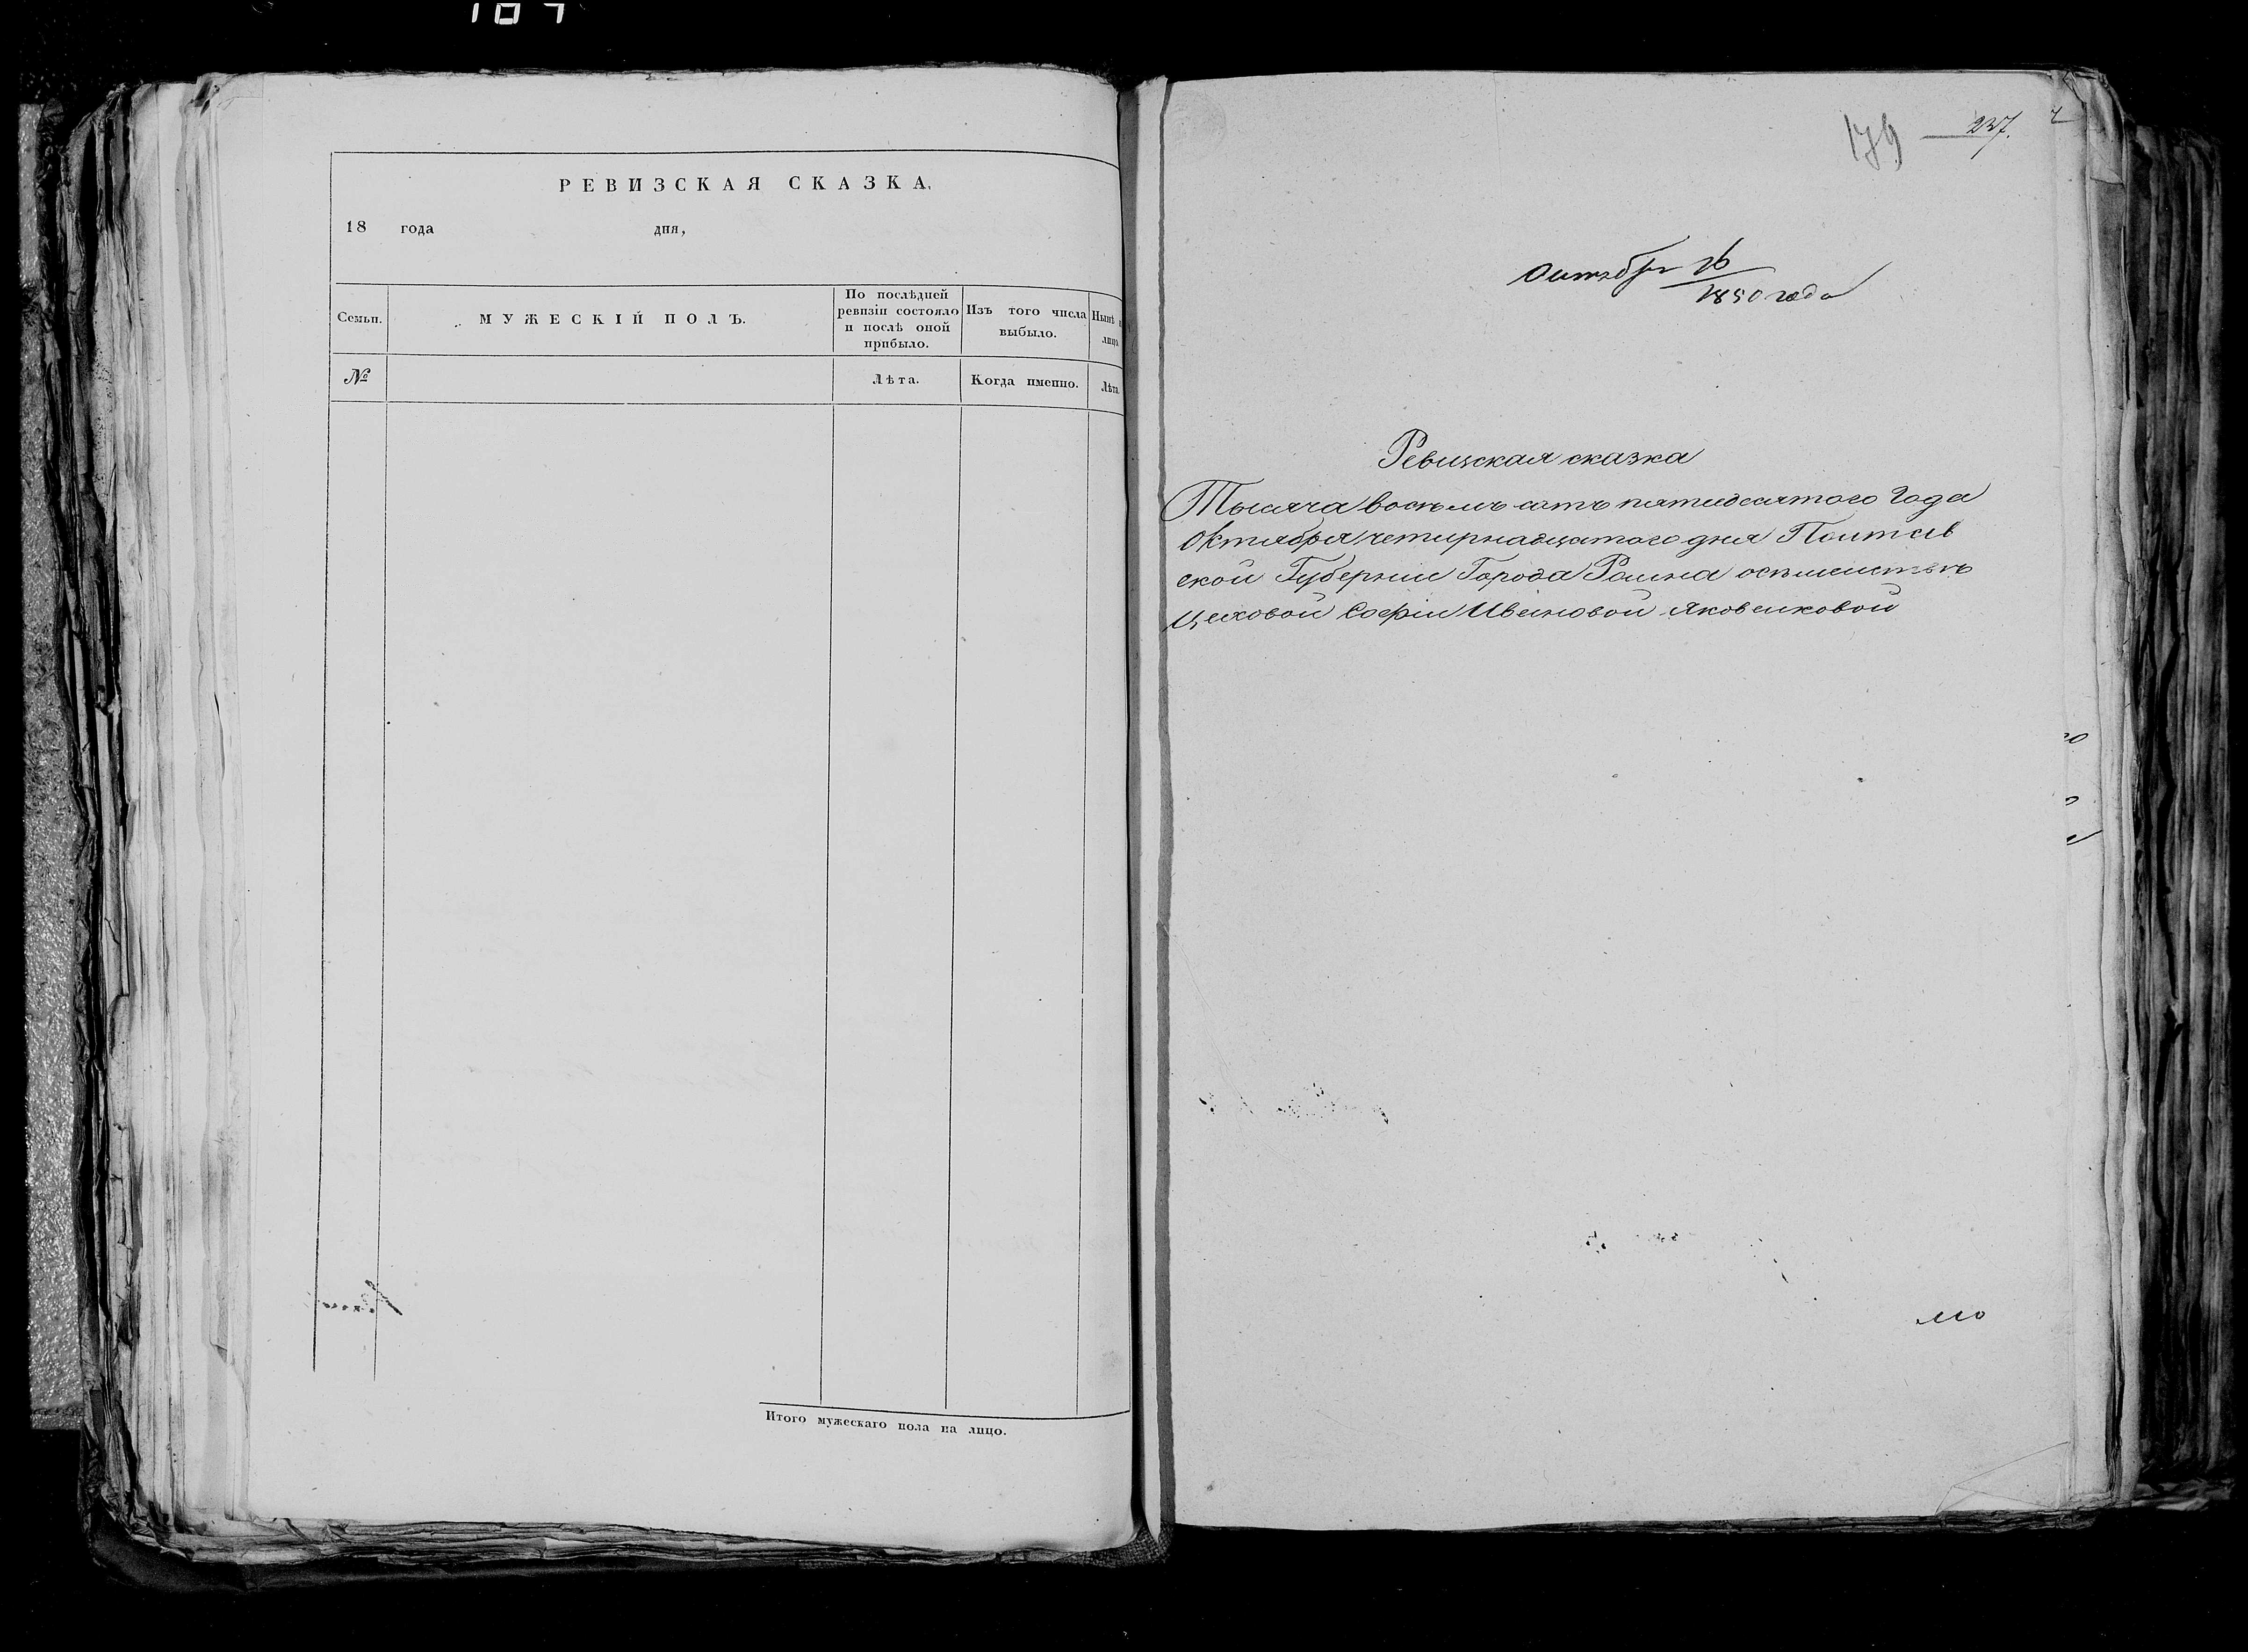 РЕВИЗСКАЯ СКАЗКА.
18 года дня,
Семьи.
МУЖЕСКІЙ ПОЛЪ.
По послѣдней
ревизіи состояло
и послѣ оной
прибыло.
Изъ того числа
выбыло.
Нынѣ
лицо.
№
Лѣта.
Когда именно.
Лѣта.
Итого мужескаго пола на лицо.
179 237.
Октября 16
1850 года
Ревизская сказка
Тысяча восемъ сотъ пятидесятого Года
Октября четирнадцатого дня Полтав
ской Губерніи Города Ромна
Цеховой Софіи Ивановой Яковенковой